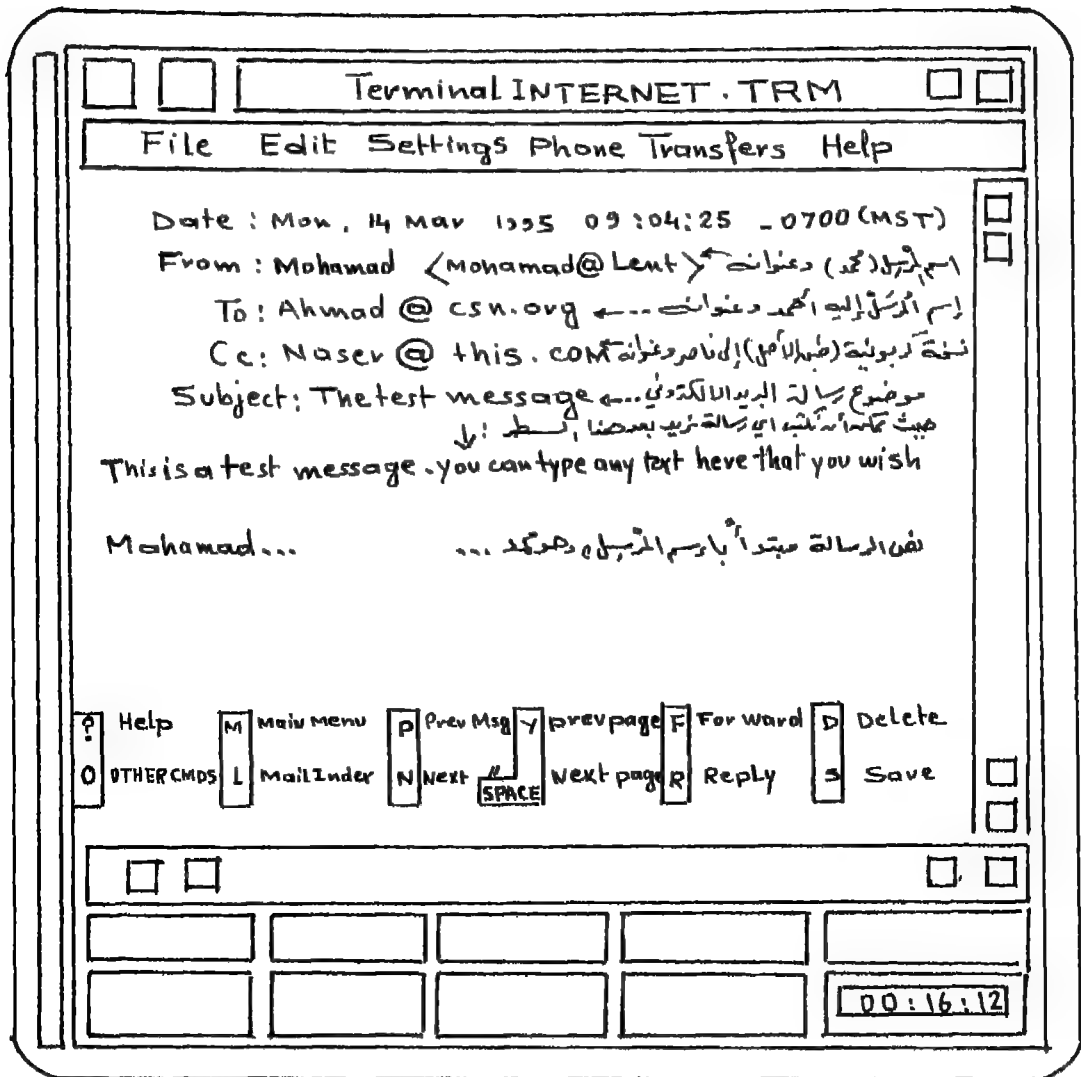 Terminal INTERNET.TRM
File Edit Settings Phone Transfers Help
Date : Mon, 14 Mar 1995 09:04:25 -0700 (MST)
From : Mohamad <Mohamad@Lent> اسم المرسل (محمد) وعنوانه
To : Ahmad @ csn.org إسم المُرسَل إليه أحمد وعنوانه
Cc : Naser @ this.com نسخة كربونية (طبق الأصل) إلى ناصر وعنوانه
Subject : The test message موضوع رسالة البريد الالكتروني
حيث يمكنك أن تكتب اي رسالة تريد بعد هذا السطر :
This is a test message . you can type any text here that you wish
Mohamad... نص الرسالة مبتدأ باسم المرسل وهو محمد ...
? Help M Main Menu P Prev Msg Y prev page F Forward D Delete
O OTHER CMDS L Mail Inder N Next SPACE Next page R Reply S Save
00:16:12